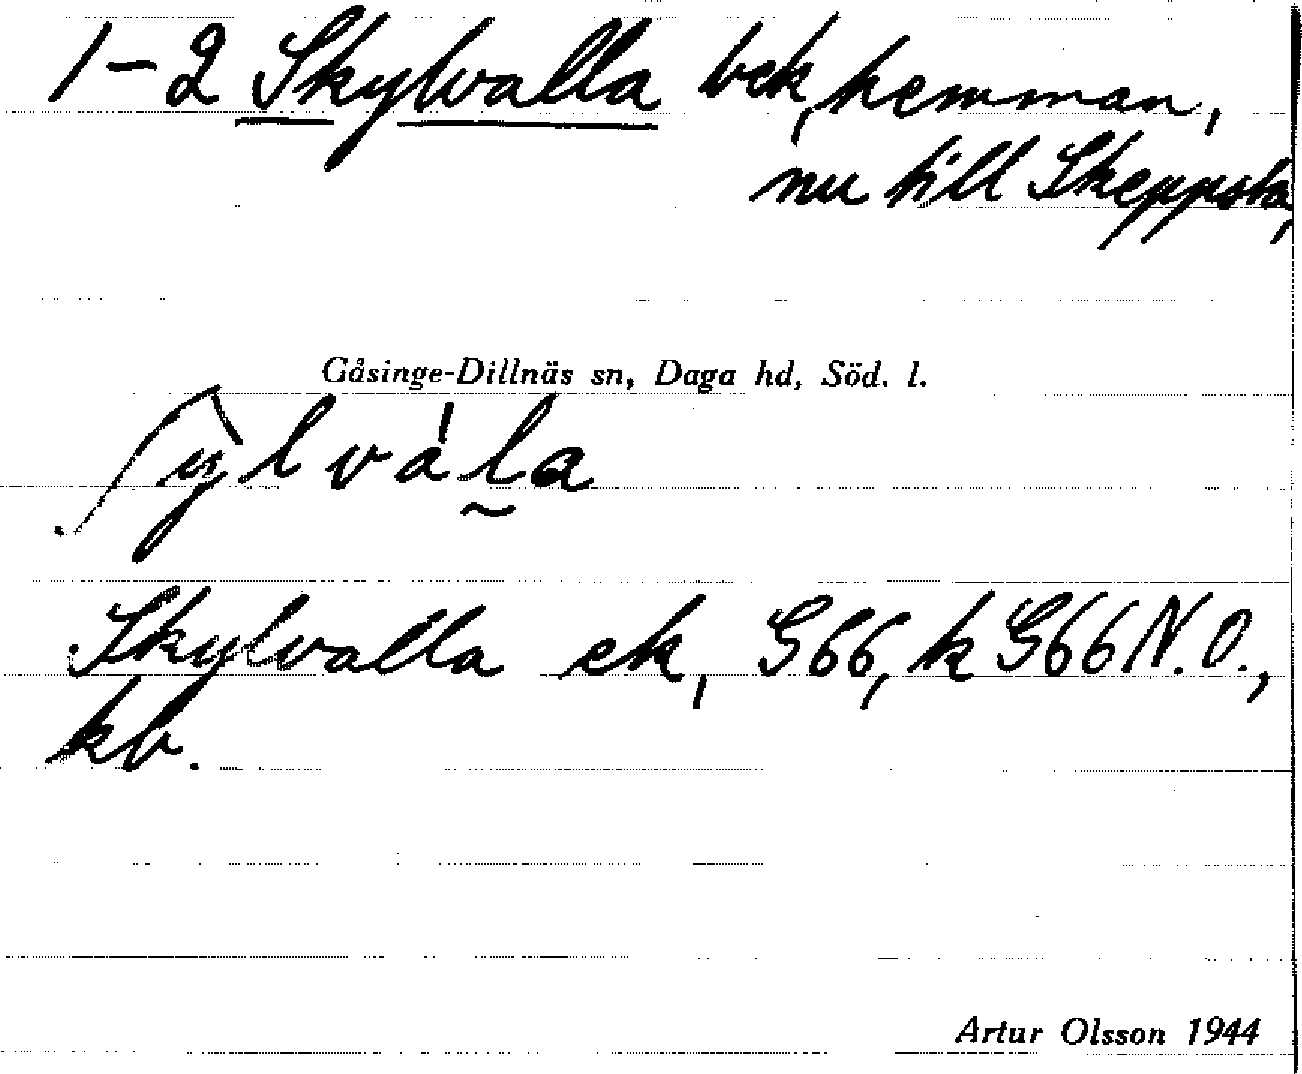 1-2 Skylvalla bek, hemman,
nu till Skeppsta,
Gåsinge-Dillnäs sn, Daga hd, Söd. l.
ʃylvàl̰a
Skylvalla ek, G66, k G66 N.O.,
kb.
Artur Olsson 1944